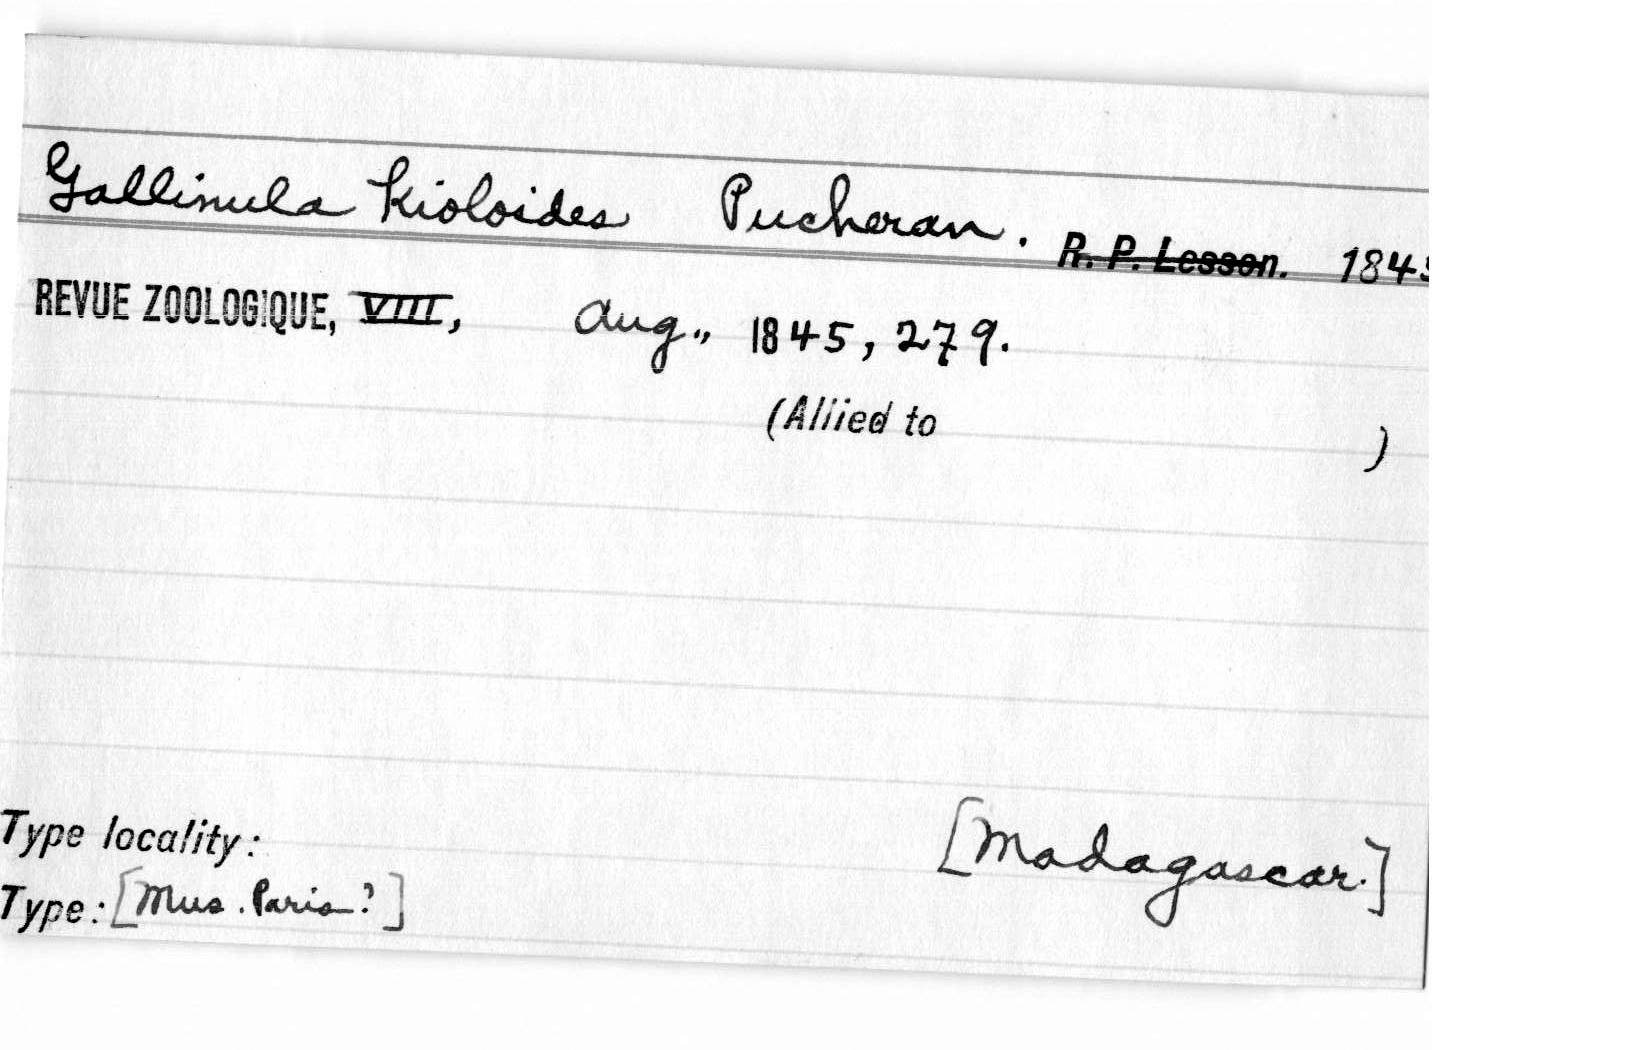 Gallinula kioloides Pucheran. R. P. Lesson. 1845
REVUE ZOOLOGIQUE, VIII, Aug., 1845, 279.
(Allied to )
Type locality: [Madagascar.]
Type: [Mus. Paris ?]